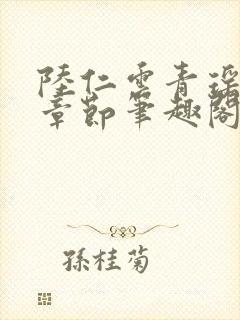 陸仁雲青瑶
章節筆趣閣
孫桂菊